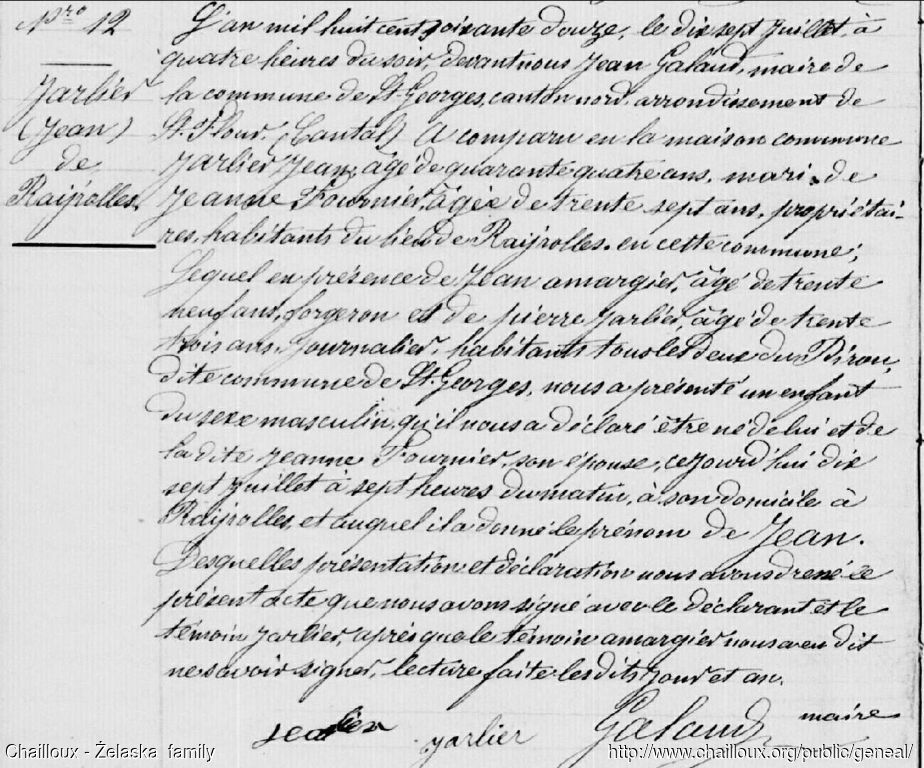 Nro 12
Jarlier
(Jean)
de
Raijrolles.
L'an mil huit cent soixante douze, le dix sept juillet, à
quatre heures du soir, devant nous Jean Galaud, maire de
la commune de St. Georges, canton nord, arrondissement de
St. Flour, (Cantal) A comparu en la maison commune
Jarlier Jean, âgé de quarante quatre ans, mari de
Jeanne Fournier, âgée de trente sept ans, propriétai-
res, habitants du lieu de Raijrolles, en cette commune;
Lequel en présence de Jean amargier, âgé de trente
neuf ans, forgeron et de pierre Jarlier, âgé de trente
trois ans, journalier, habitants tous les deux du Pirou,
dite commune de St. Georges, nous a présenté un enfant
du sexe masculin, qu'il nous a déclaré être né de lui et de
la dite Jeanne Fournier, son épouse, cejourd'hui dix
sept juillet à sept heures du matin, à son domicile à
Raijrolles, et auquel il a donné le prénom de Jean.
Desquelles présentation et déclaration nous avons dressé ce
présent acte que nous avons signé avec le déclarant et le
témoin Jarlier, après que le témoin amargier nous a eu dit
ne savoir signer, lecture faite les dits jour et an.
jarlier Galaud maire
Chailloux - Żelaska family
http://www.chailloux.org/public/geneal/